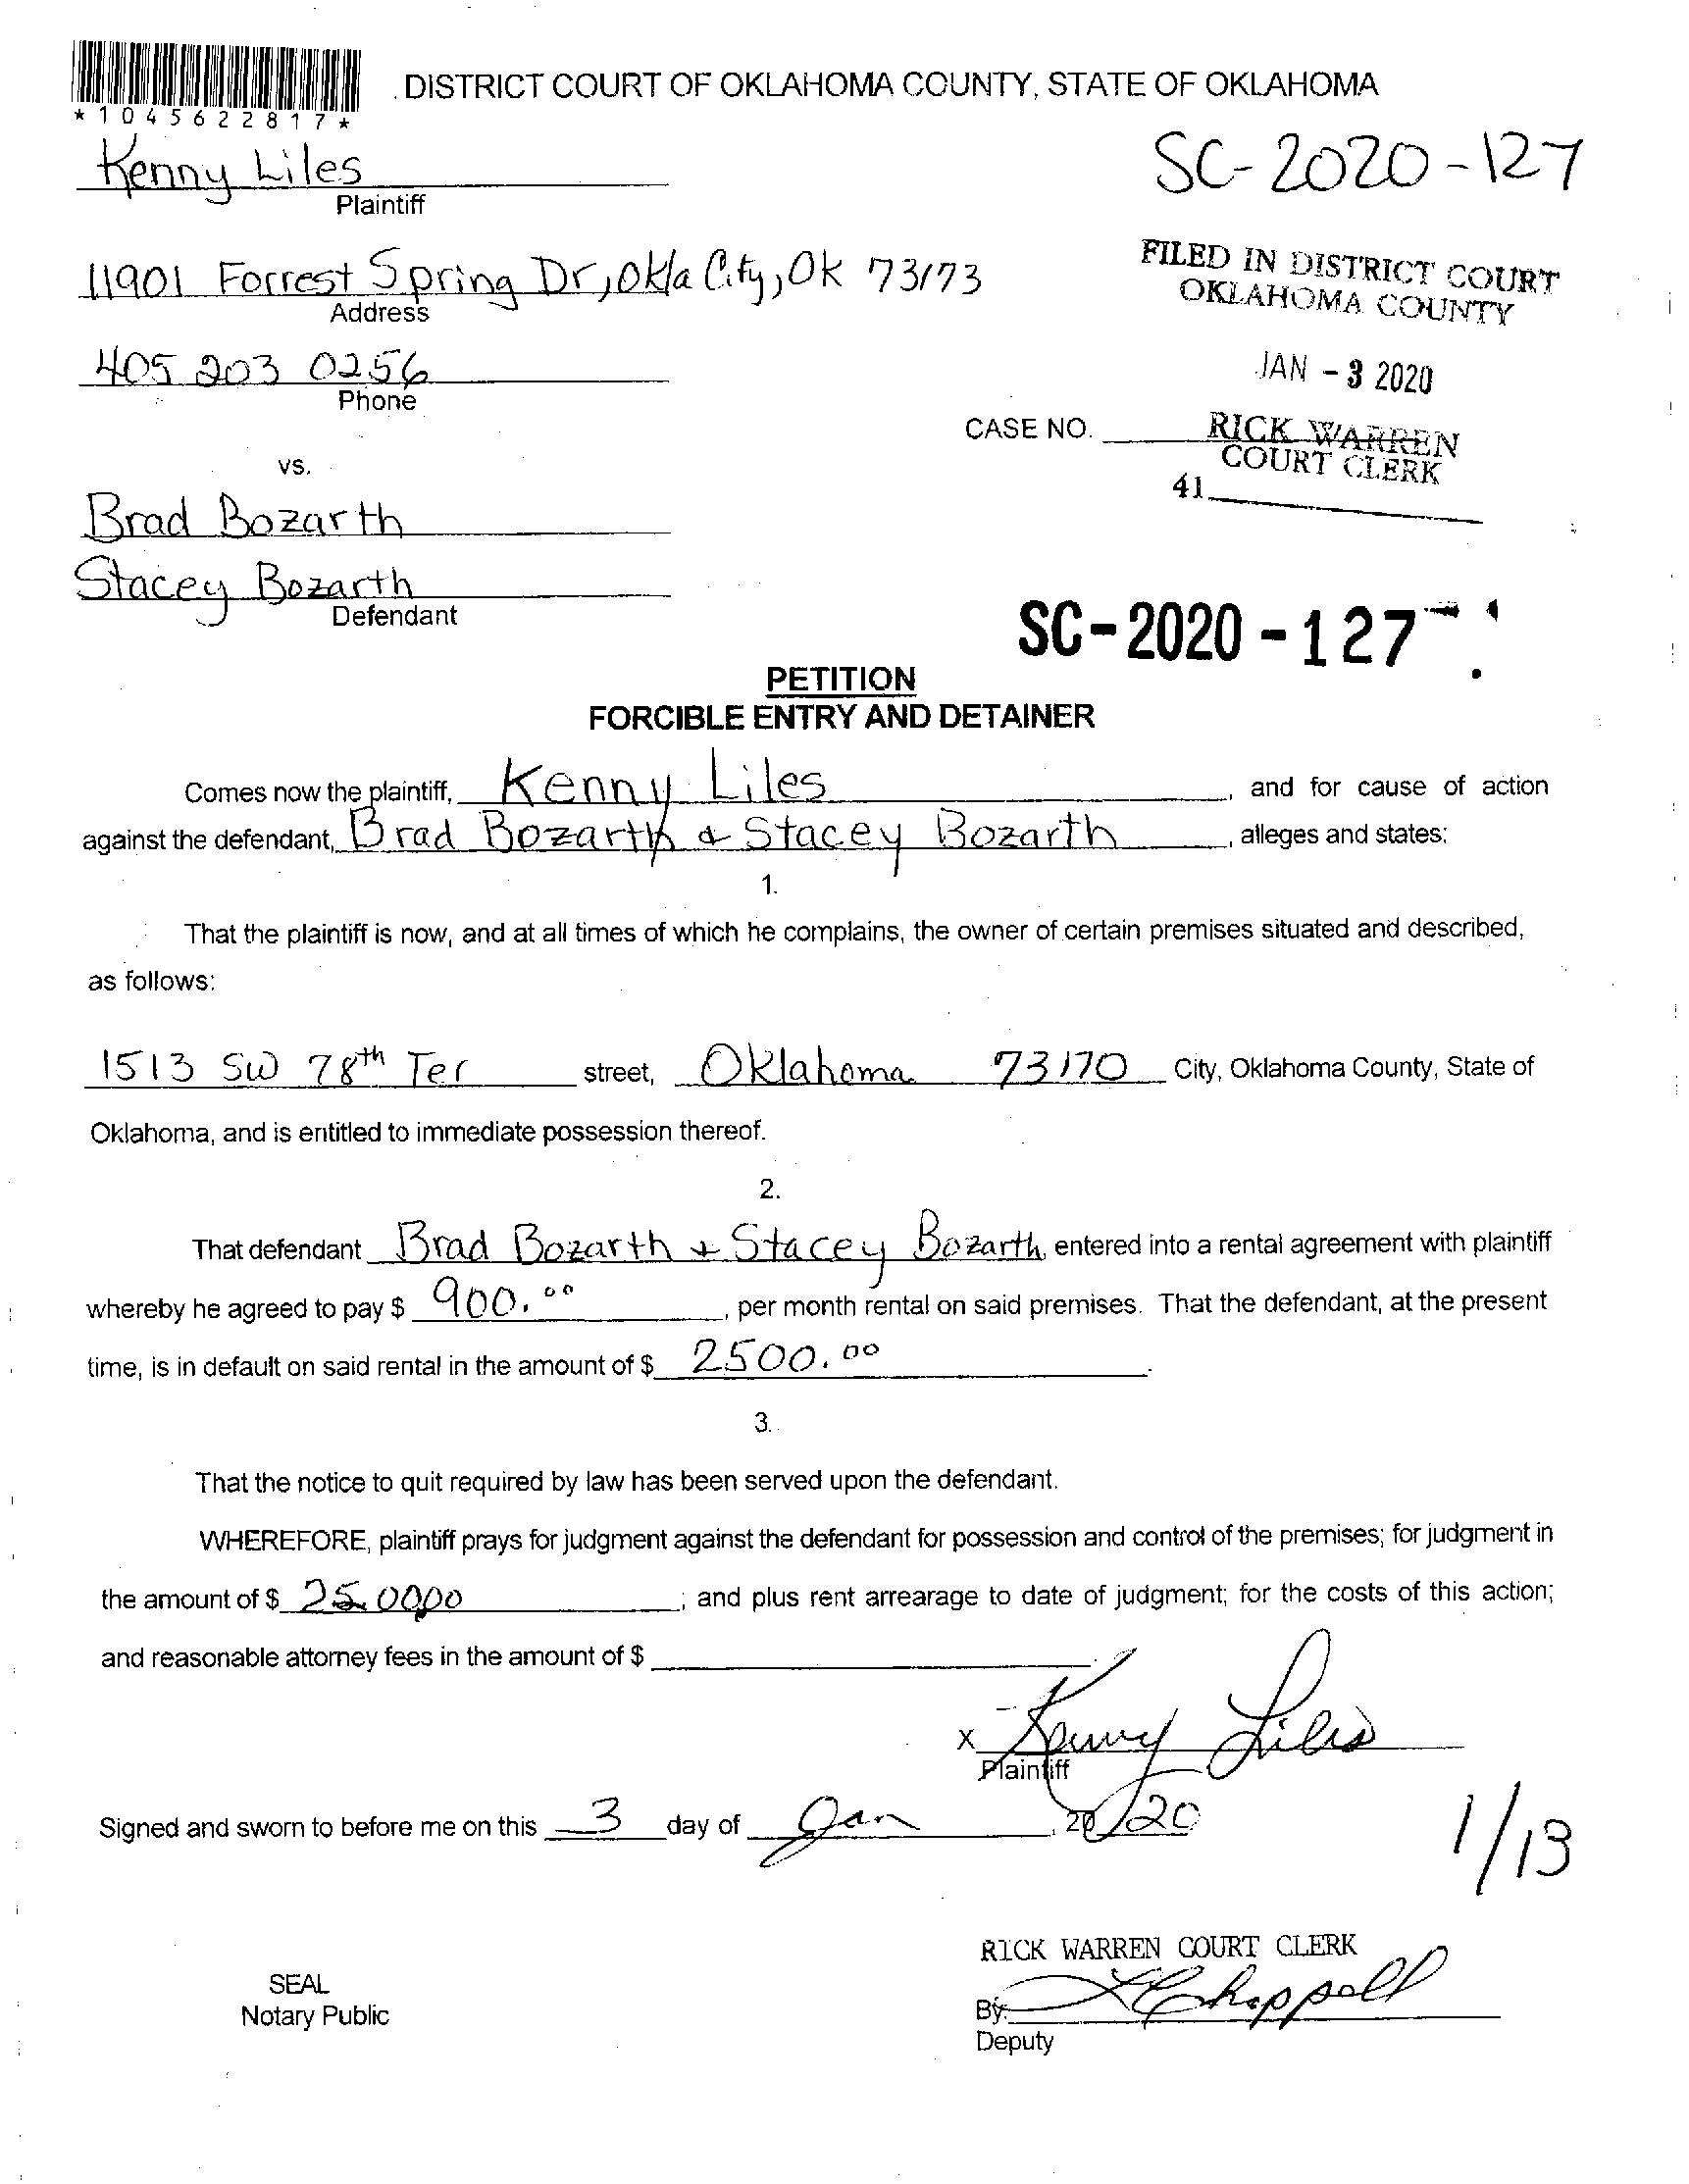 DISTRICT COURT OF OKLAHOMA COUNTY, STATE OF OKLAHOMA
*1045622817*
Kenny Liles
Plaintiff
SC-2020-127
11901 Forrest Spring Dr, Okla City, OK 73173
Address
FILED IN DISTRICT COURT
OKLAHOMA COUNTY
405 203 0256
Phone
JAN - 3 2020
CASE NO.
RICK WARREN
COURT CLERK
41
vs.
Brad Bozarth
Stacey Bozarth
Defendant
SC-2020-127
PETITION
FORCIBLE ENTRY AND DETAINER
Comes now the plaintiff, Kenny Liles, and for cause of action
against the defendant, Brad Bozarth & Stacey Bozarth, alleges and states:
1.
That the plaintiff is now, and at all times of which he complains, the owner of certain premises situated and described,
as follows:
1513 SW 78th Ter street, Oklahoma 73170 City, Oklahoma County, State of
Oklahoma, and is entitled to immediate possession thereof.
2.
That defendant Brad Bozarth + Stacey Bozarth, entered into a rental agreement with plaintiff
whereby he agreed to pay $ 900.00, per month rental on said premises. That the defendant, at the present
time, is in default on said rental in the amount of $ 2500.00.
3.
That the notice to quit required by law has been served upon the defendant.
WHEREFORE, plaintiff prays for judgment against the defendant for possession and control of the premises; for judgment in
the amount of $ 25.0000; and plus rent arrearage to date of judgment; for the costs of this action;
and reasonable attorney fees in the amount of $
x Kenny Liles
Plaintiff
Signed and sworn to before me on this 3 day of Jan, 20 20
1/13
RICK WARREN COURT CLERK
SEAL
Notary Public
By: Chappell
Deputy